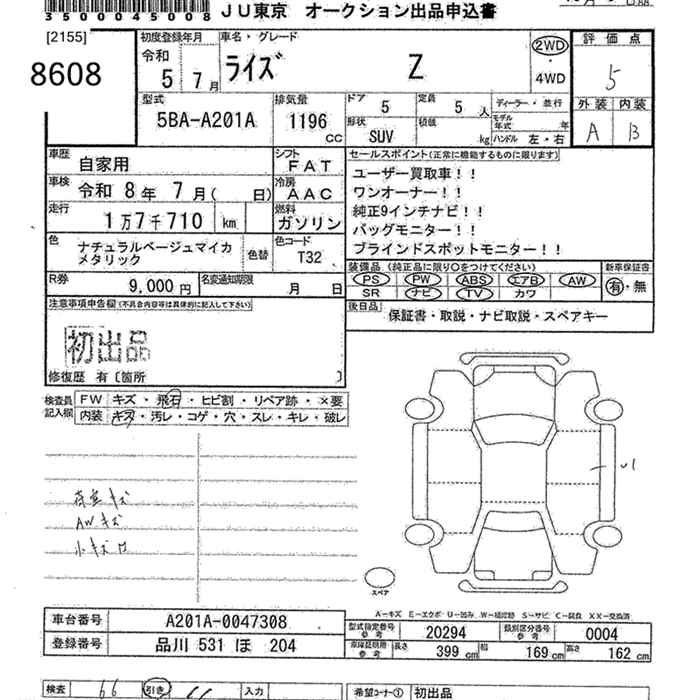 3500045008 JU東京 オークション出品申込書
[2155]
8608
初度登録年月 令和 5年 7月
車名・グレード
ライズ Z
2WD ・ 4WD
評価点
5
外装 内装
A B
型式
5BA-A201A
排気量
1196 cc
ドア 5
定員 5 人
形状 SUV
積載 kg
ディーラー・並行
モデル年式 年
ハンドル 左・右
車歴 自家用
シフト FAT
車検 令和 8年 7月( 日)
冷房 AAC
走行 1万7千710 km
燃料 ガソリン
色 ナチュラルベージュマイカメタリック
色替
色コード T32
R券 9,000円
名変通知期限 月 日
セールスポイント(正常に機能するものに限ります)
ユーザー買取車!!
ワンオーナー!!
純正9インチナビ!!
バッグモニター!!
ブラインドスポットモニター!!
装備品 (純正品に限り○をつけてください)
PS PW ABS エアB AW
SR ナビ TV カワ
新車保証書
有・無
後日品 保証書・取説・ナビ取説・スペアキー
注意事項申告欄(不具合内容等は具体的に記入して下さい)
初出品
修復歴 有〔箇所 〕
検査員記入欄
FW キズ・飛石・ヒビ割・リペア跡・×要
内装 キズ・汚レ・コゲ・穴・スレ・キレ・破レ
AWキズ
小キズ
スペア
A-キズ E-エクボ U-凹み W-補修跡 S-サビ C-腐食 XX-交換済
車台番号 A201A-0047308
登録番号 品川 531 ほ 204
型式指定番号 参考 20294
類別区分番号 参考 0004
車庫証明用 参考 長さ 399 cm 幅 169 cm 高さ 162 cm
検査 66 引き 入力
希望コーナー① 初出品